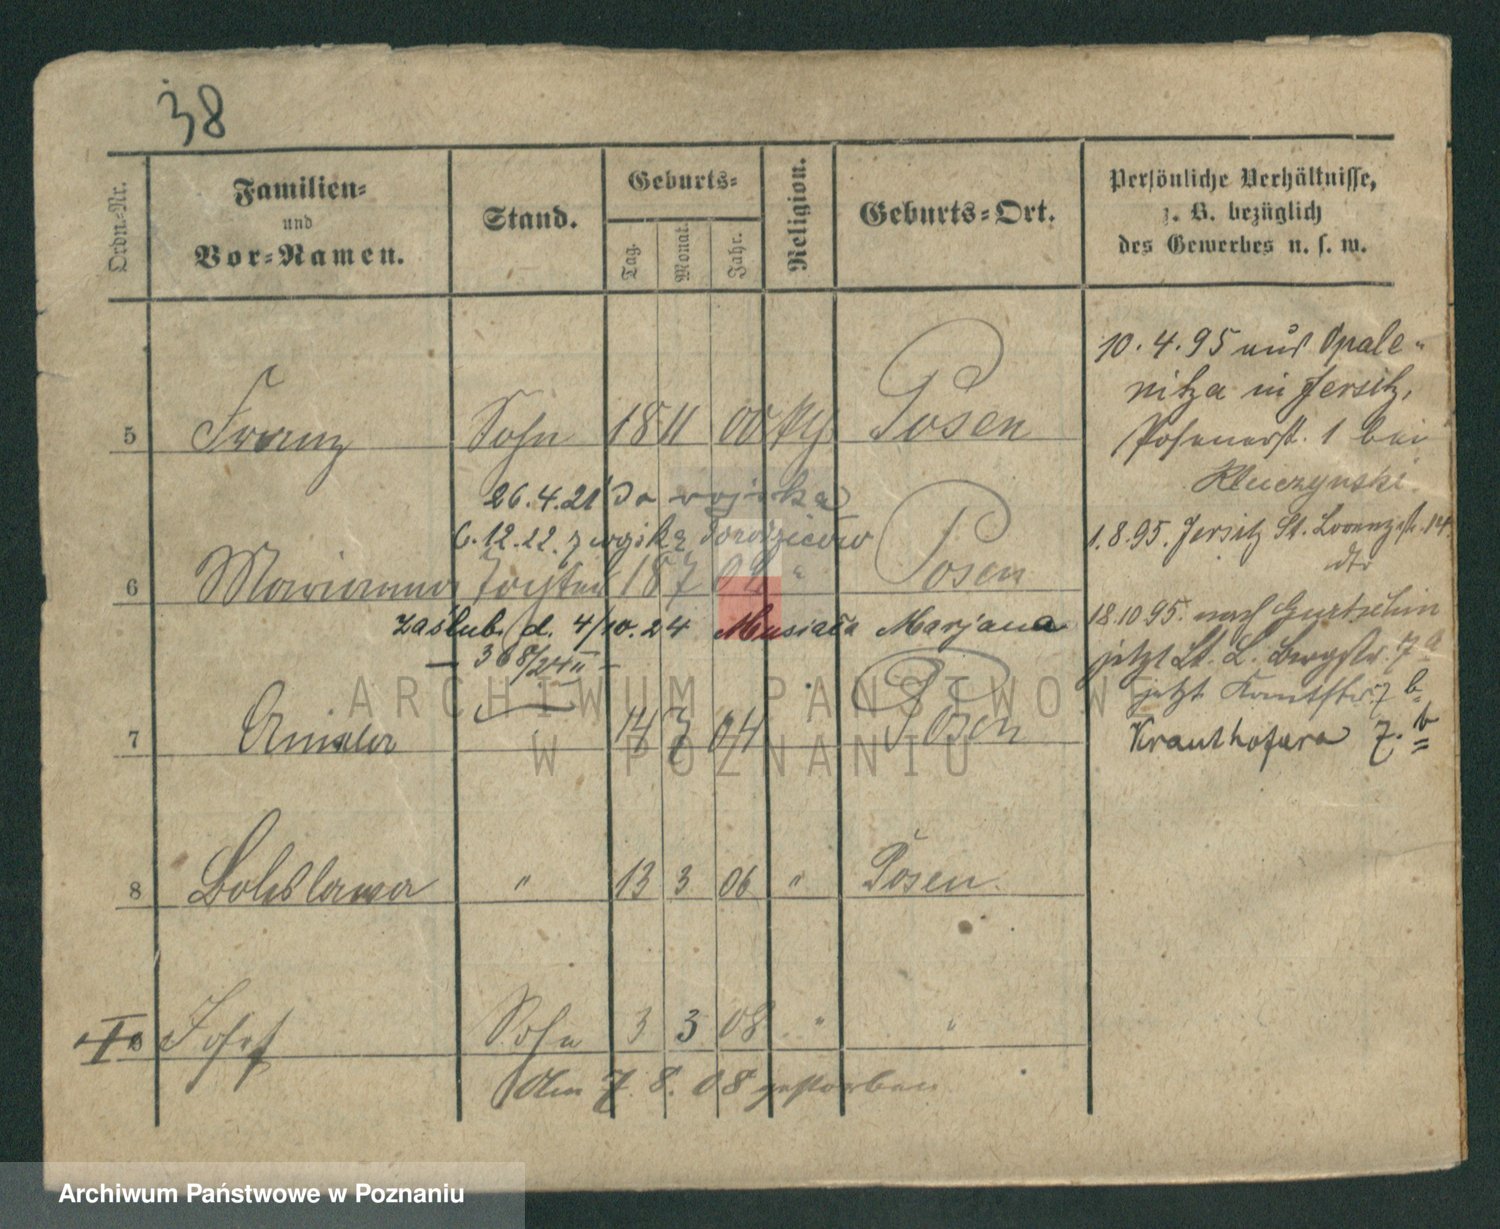 38
Ordn.-Nr.
Familien-
und
Vor-Namen.
Stand.
Geburts-
Tag.
Monat.
Jahr.
Religion.
Geburts-Ort.
Persönliche Verhältnisse,
z. B. bezüglich
des Gewerbes u. s. w.
5 Franz Sohn 18 11 00 Posen
26.4.21 do wojska
6.12.22. z wojska
6 Marianna Tochter 18 7 02 " Posen
zaślub. d. 4/10.24 Musiała Marjana
— 368/24 II —
7 14 7 04 Posen
8 Boleslawa " 13 3 06 " Posen.
Josef Sohn 3 3 08 " "
Am 7.8.08 gestorben
10.4.95 aus Opale-
nitza in Jersitz,
Posenerst. 1 bei
Kluczynski.
1.8.95. Jersitz St. Lorenzstr. 14.
dto
18.10.95. nach Gurtschin
jetzt St. L. Bergstr. 7a
jetzt 7 b.
Krauthofera 7.b
ARCHIWUM PAŃSTWOWE
W POZNANIU
Archiwum Państwowe w Poznaniu